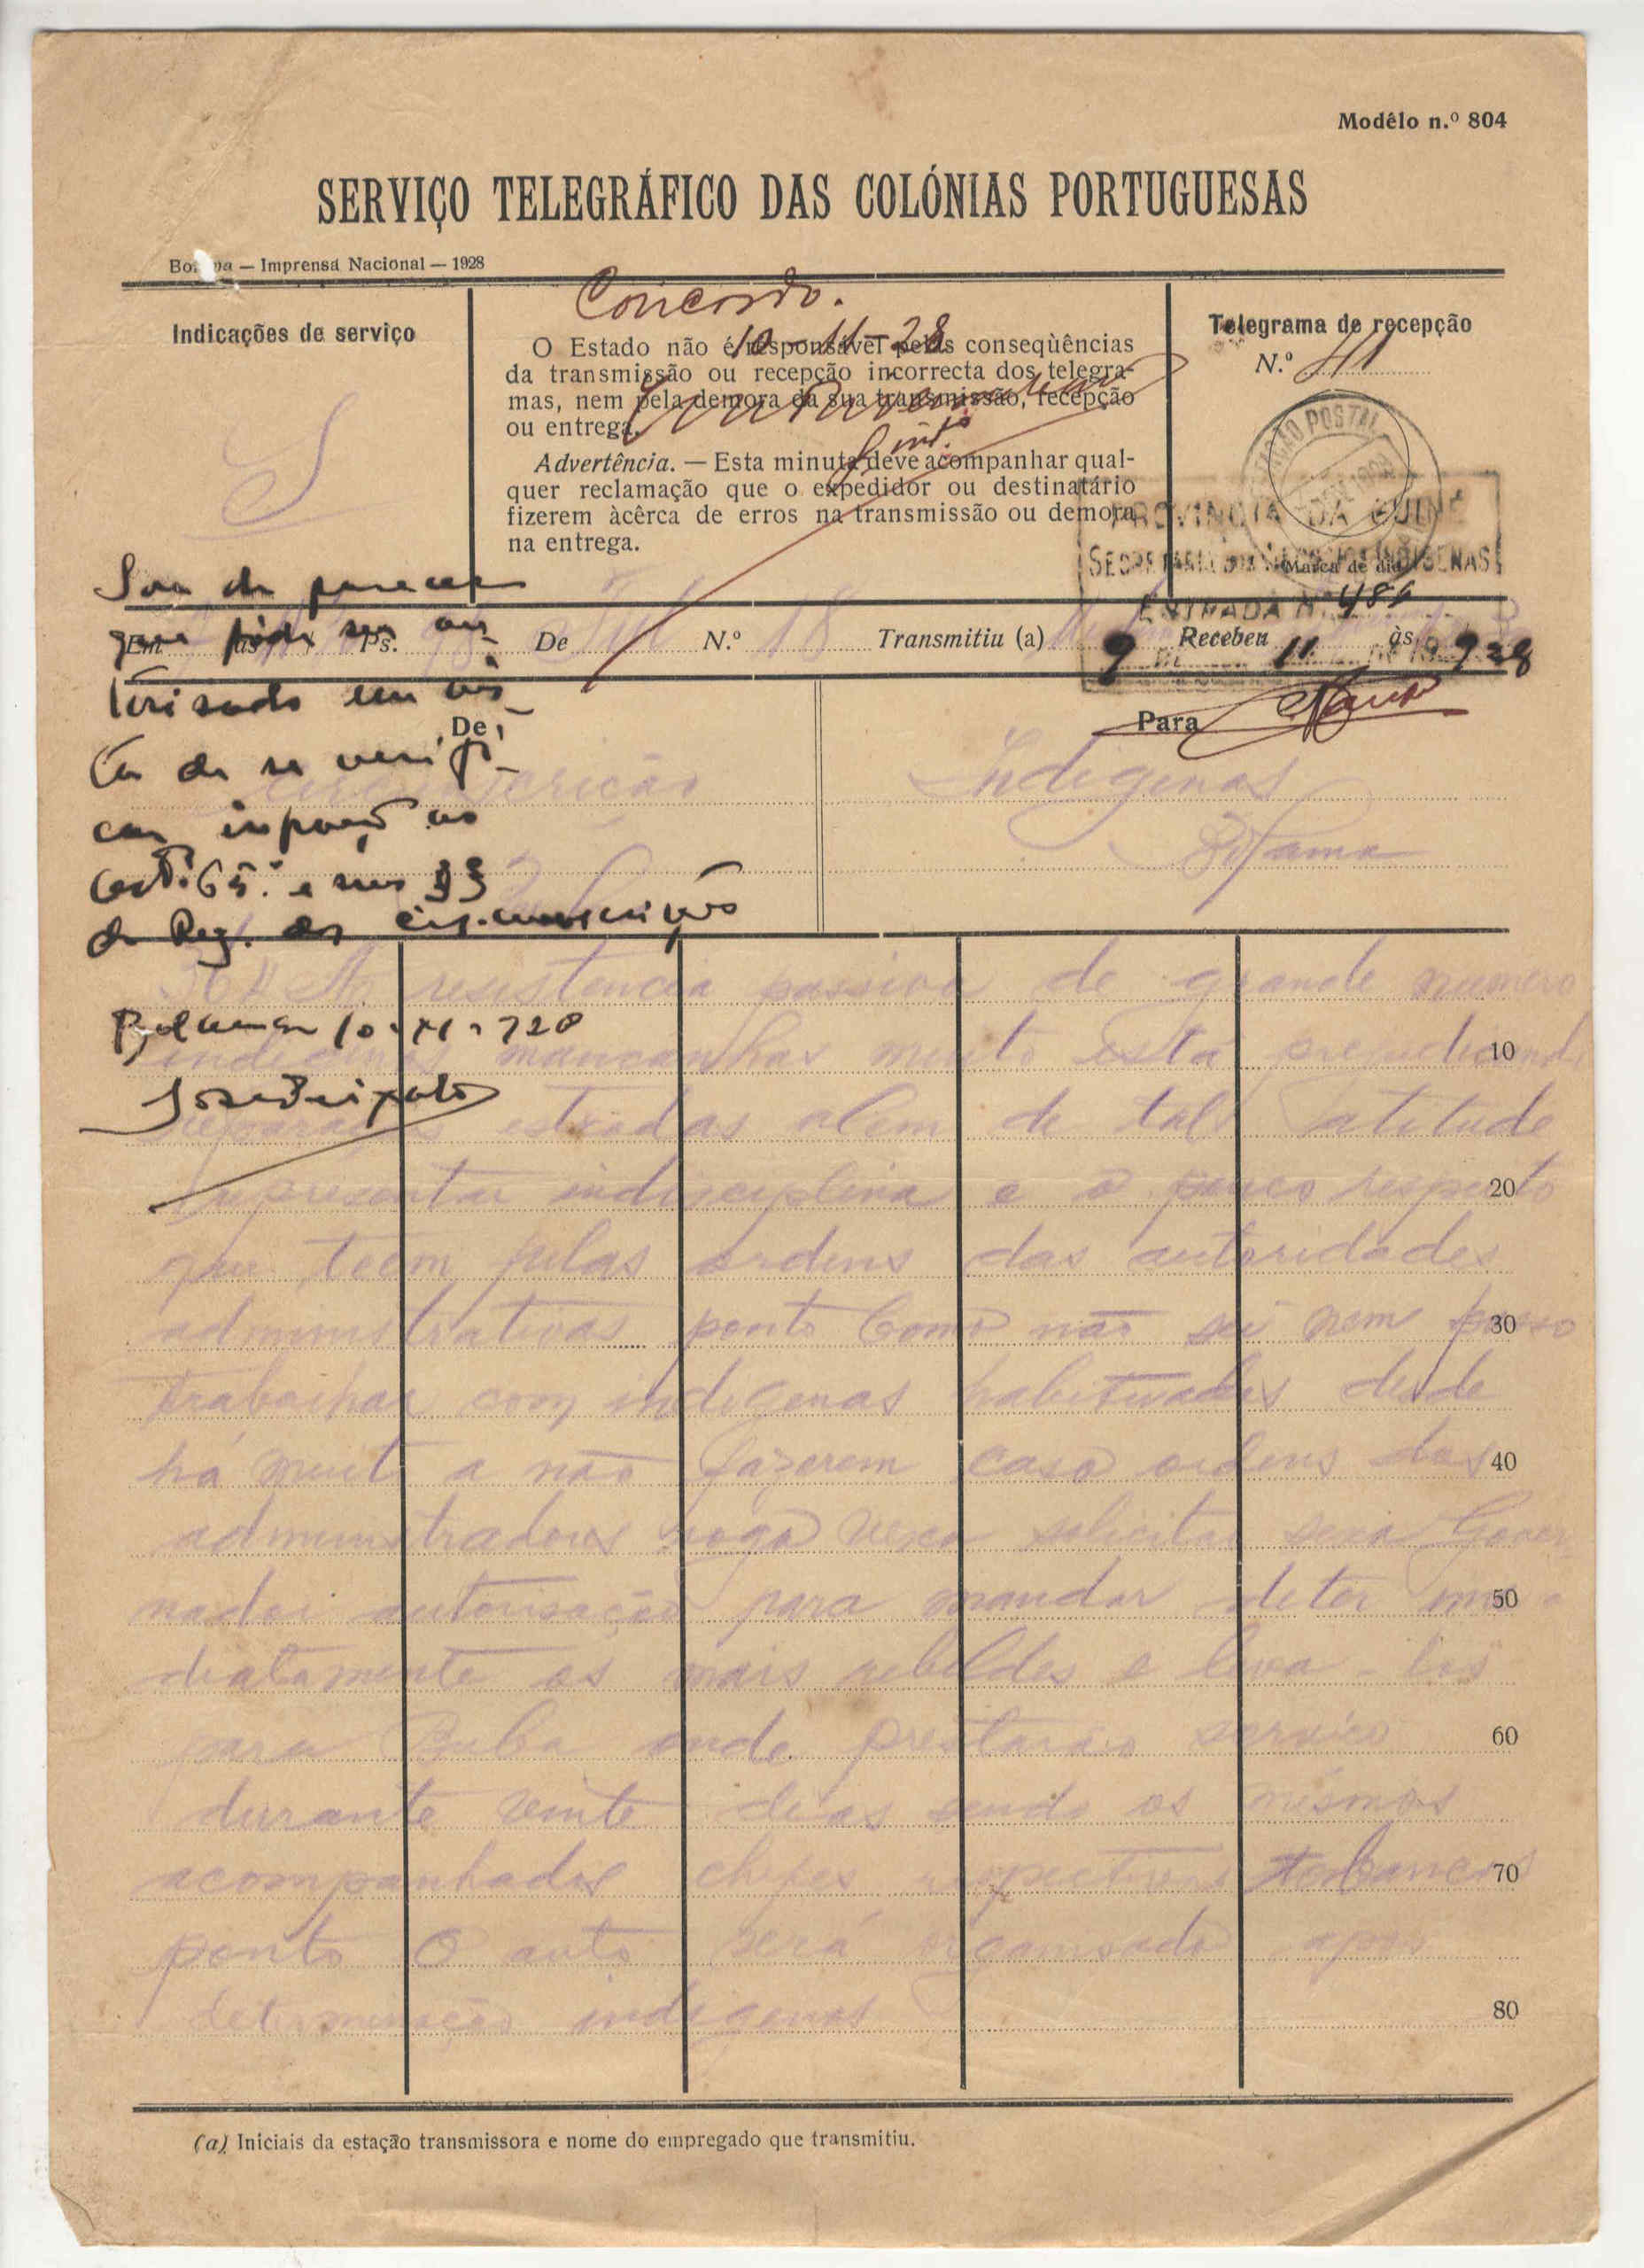 Modêlo n.º 804
SERVIÇO TELEGRÁFICO DAS COLÓNIAS PORTUGUESAS
— Imprensa Nacional — 1928
Indicações de serviço
S
Concordo.
10-11-28
O Estado não é responsável pelas conseqüências
da transmissão ou recepção incorrecta dos telegra-
mas, nem pela demora da sua transmissão, recepção
ou entrega.
Advertência. — Esta minuta deve acompanhar qual-
quer reclamação que o expedidor ou destinatário
fizerem àcêrca de erros na transmissão ou demora
na entrega.
Telegrama de recepção
N.º
PROVINCIA DA GUINÉ
Marca de dia
ENTRADA N.º
Em às Ps. De N.º 18 Transmitiu (a) Recebeu às
9 11 928
Sou de parecer
que pode ser au-
torisado em vis-
ta de se verifi-
car
Art.º 65.º e seus §§
do Reg. das circunscrições
Bolama 10-XI-928
De
Para
Indigenas
Bolama
resistencia passiva de grande numero
indigenas mancanhas muito está prejudicando 10
estradas alem de tal atitude
representar indisciplina e o pouco respeito 20
que teem pelas ordens das autoridades
administrativas ponto Como não sei nem posso 30
trabalhar com indigenas habituados desde
há muito a não fazerem caso ordens dos 40
administradores rogo vexa solicitar sexa Gover-
nador autorisação para mandar deter ime- 50
diatamente os mais rebeldes e leva-los
para Buba onde prestarão serviço 60
durante vinte dias sendo os mesmos
acompanhados chefes respectivas tabancas 70
ponto O auto será organisado após
indigenas 80
(a) Iniciais da estação transmissora e nome do empregado que transmitiu.